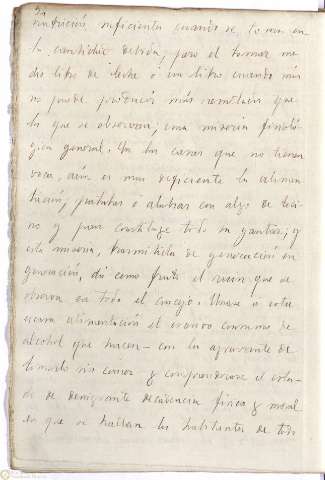 nutrición suficiente cuando se toma en
la cantidad debida, pero el tomar me-
dio litro de leche ó un litro cuando más
no puede producir más resultado que
lo que se observa; una miseria fisioló-
gica general. En las casas que no tienen
vaca, aún es mas deficiente la alimen-
tación, patatas ó alubias con algo de toci-
no y pan constituye todo su yantar; y
esta miseria, trasmitida de generación en
generación, dá como fruto el que se
observa en todo el concejo. Unase á esta
escasa alimentación el consumo de
alcohol que hacen — con la agravante de
tomarlo sin comer — y comprenderase el esta-
do de denigrante decadencia física y moral
en que se hallan los habitantes de todo